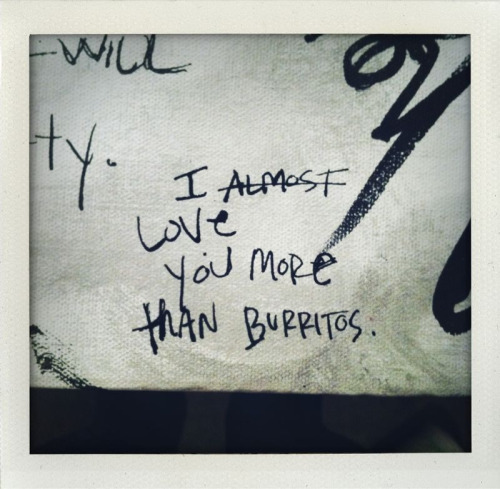 -WILL
ty.
I ALMOST
LOVE
YOU MORE
THAN BURRITOS.